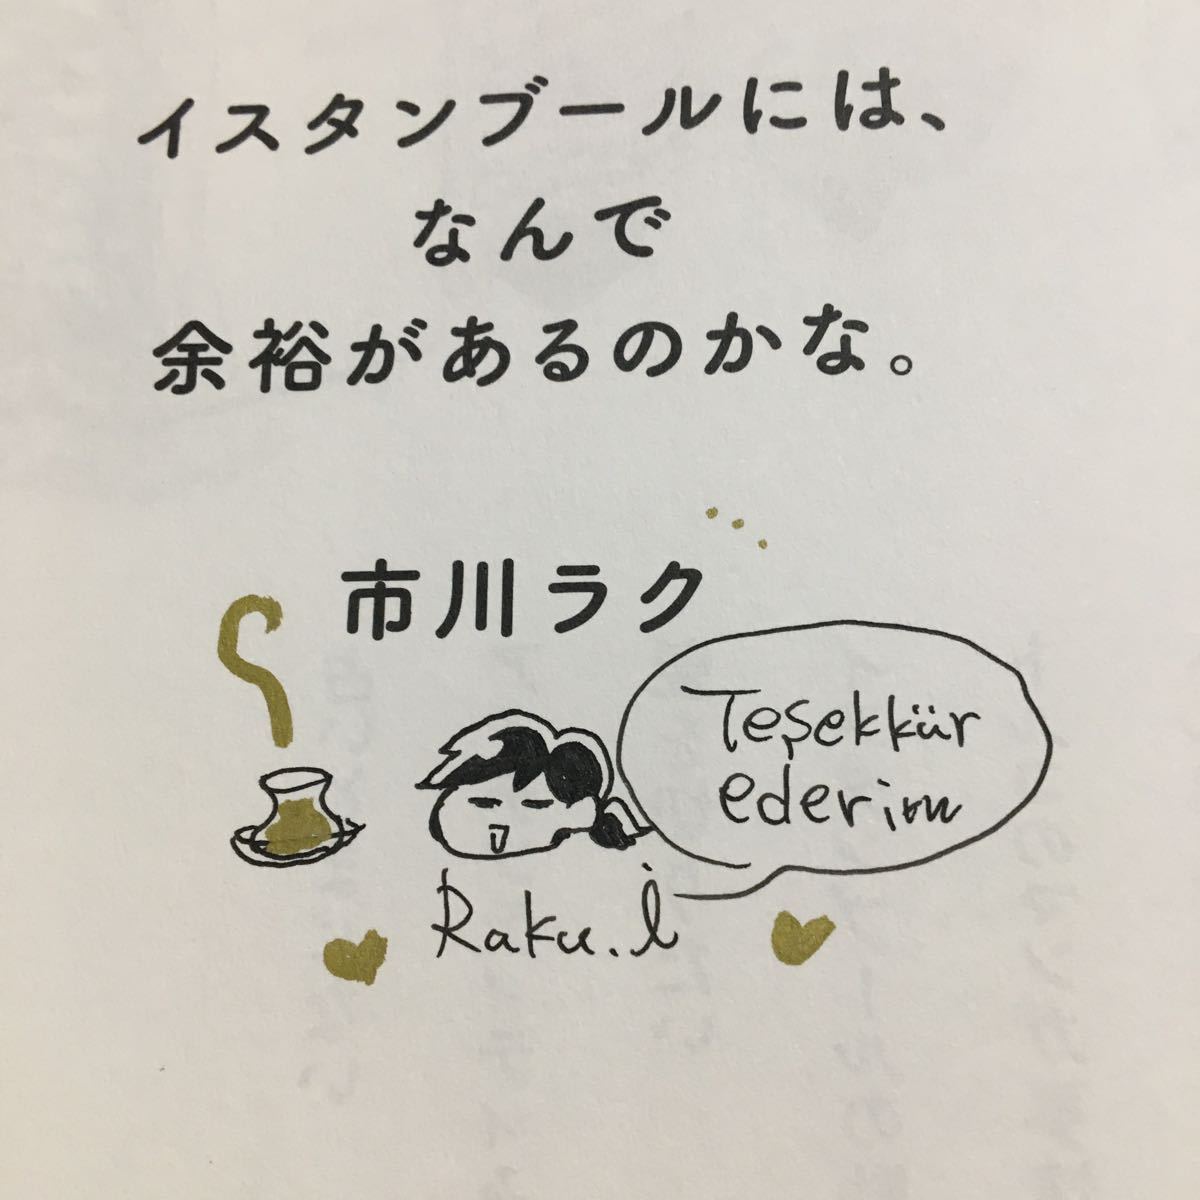 イスタンブールには、
なんで
余裕があるのかな。
市川ラク
Teşekkür
ederim
Raku.i